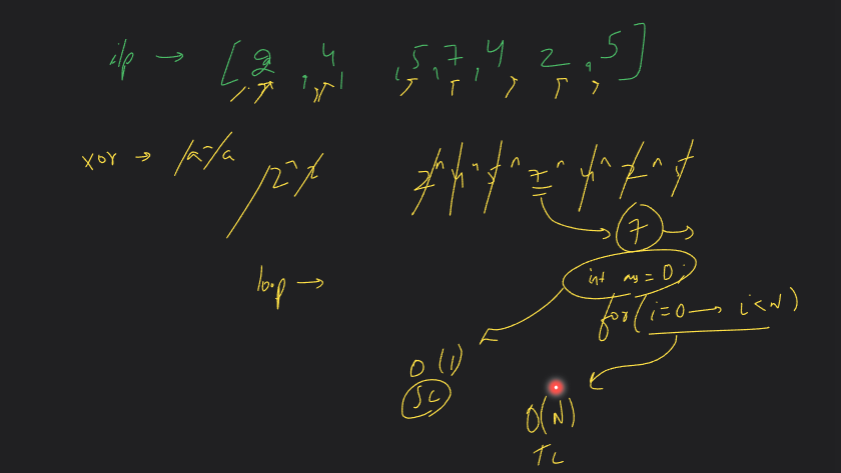 i/p → [2, 4, , 5, 7, 4, 2, 5]
xor → a^a
2^2
2^4^5^7^4^2^5
7
loop →
int ans = 0;
for(i=0 → i<N)
O(1)
SC
O(N)
TC